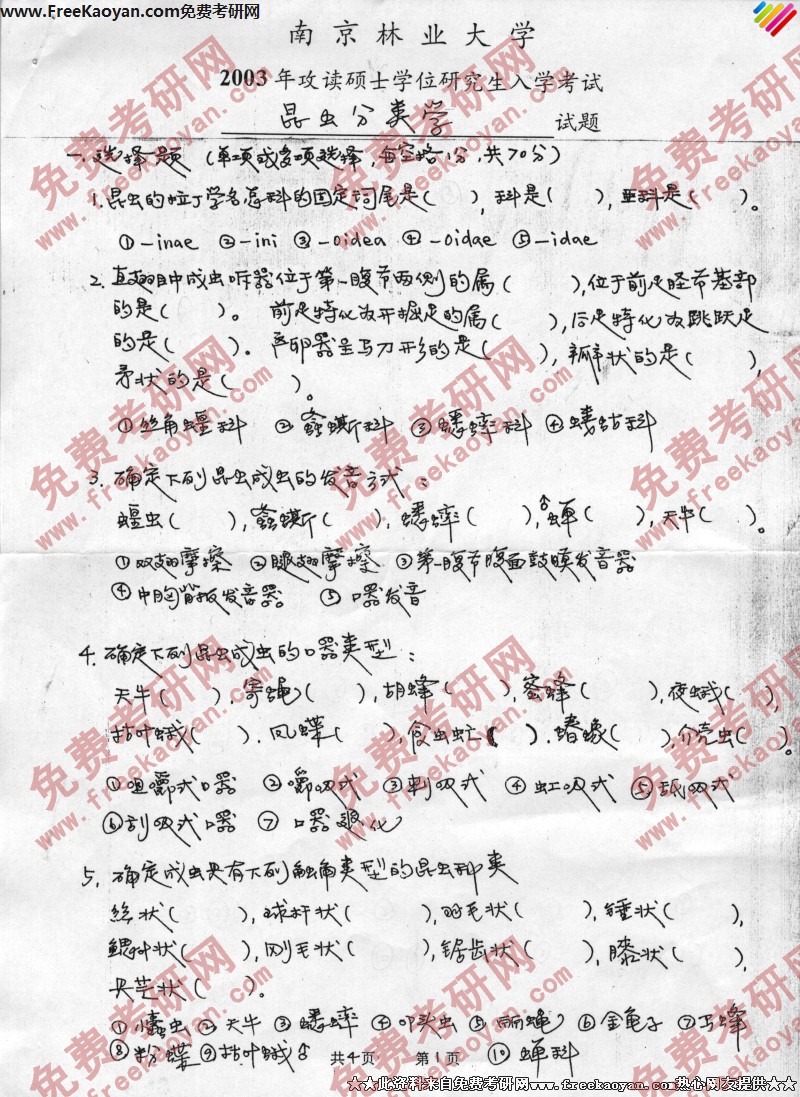 www.FreeKaoyan.com免费考研网
南京林业大学
2003年攻读硕士学位研究生入学考试
昆虫分类学 试题
一、选择题（单项或多项选择，每空格1分，共70分）
1.昆虫的拉丁学名总科的固定词尾是（ ），科是（ ），亚科是（ ）。
①-inae ②-ini ③-oidea ④-oidae ⑤-idae
2.直翅目中成虫听器位于第一腹节两侧的属（ ），位于前足胫节基部
的是（ ）。前足特化为开掘足的属（ ），后足特化为跳跃足
的是（ ）。产卵器呈马刀形的是（ ），瓣状的是（ ），
矛状的是（ ）。
①丝角蝗科 ②螽蟖科 ③蟋蟀科 ④蝼蛄科
3.确定下列昆虫成虫的发音方式：
蝗虫（ ），螽蟖（ ），蟋蟀（ ），♂蝉（ ），天牛（ ）。
①双翅摩擦 ②腿翅摩擦 ③第一腹节腹面鼓膜发音器
④中胸背板发音器 ⑤口器发音
4.确定下列昆虫成虫的口器类型：
天牛（ ），寄蝇（ ），胡蜂（ ），蜜蜂（ ），夜蛾（ ），
枯叶蛾（ ）.凤蝶（ ），食虫虻（ ）.蝽象（ ），介壳虫（ ）。
①咀嚼式口器 ②嚼吸式 ③刺吸式 ④虹吸式 ⑤舐吸式
⑥刮吸式口器 ⑦口器退化
5.确定成虫具有下列触角类型的昆虫种类
丝状（ ），球杆状（ ），羽毛状（ ），锤状（ ），
鳃叶状（ ），刚毛状（ ），锯齿状（ ），膝状（ ），
具芒状（ ）。
①小蠹虫 ②天牛 ③蟋蟀 ④叩头虫 ⑤丽蝇 ⑥金龟子 ⑦马蜂
⑧粉蝶 ⑨枯叶蛾♂ ⑩蝉科
共4页 第1页
★★此资料来自免费考研网www.freekaoyan.com热心网友提供★★
免费考研网
www.freekaoyan.com